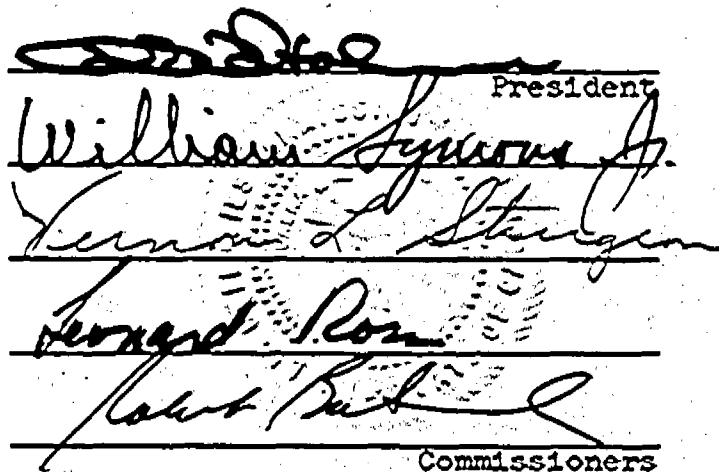 President
William Symons Jr.
Vernon L Sturgeon
Leonard Ross
Robert
Commissioners